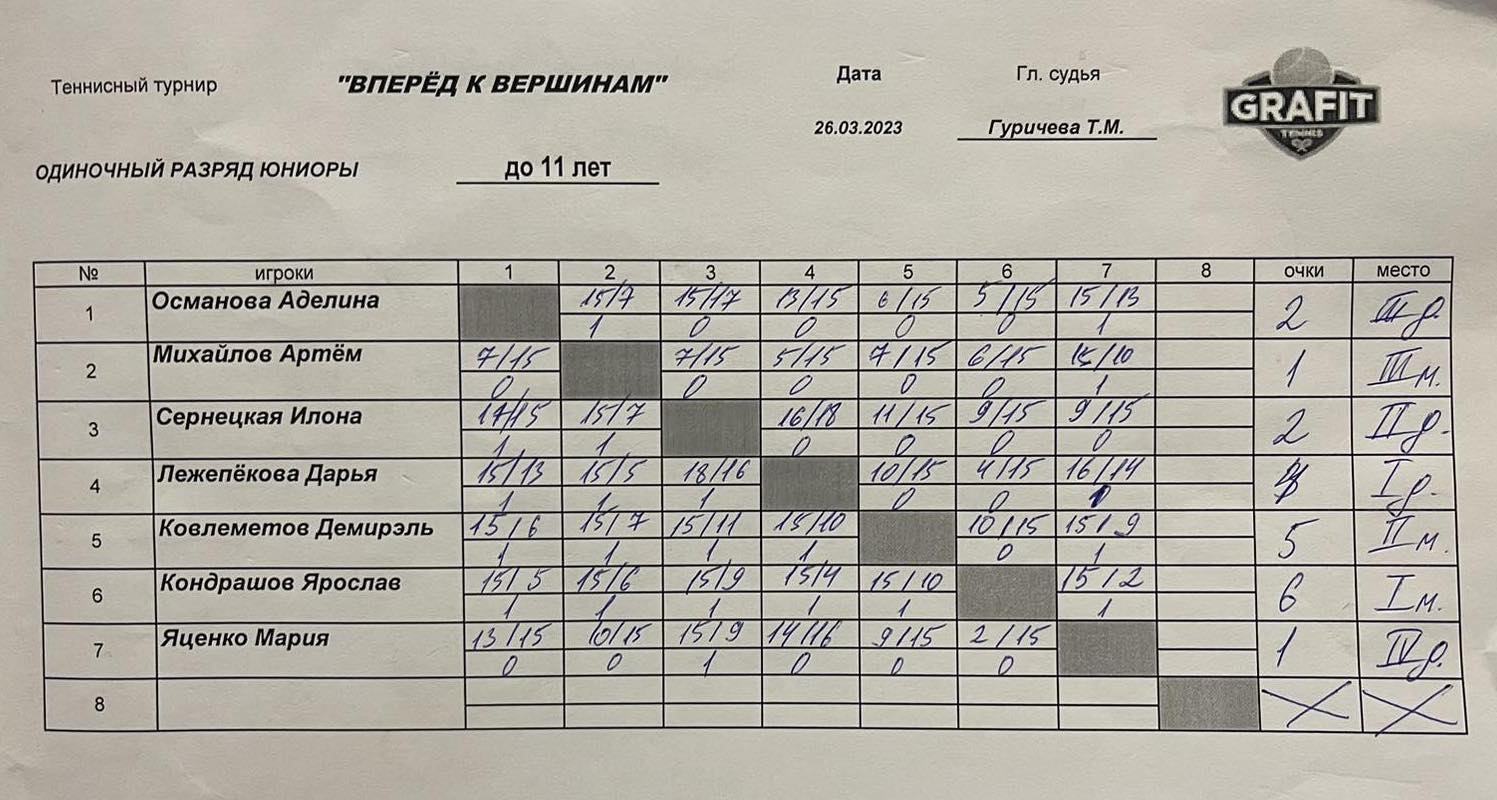 Теннисный турнир "ВПЕРЁД К ВЕРШИНАМ" Дата Гл. судья
GRAFIT
TENNIS
26.03.2023 Гуричева Т.М.
ОДИНОЧНЫЙ РАЗРЯД ЮНИОРЫ до 11 лет
№ игроки 1 2 3 4 5 6 7 8 очки место
1 Османова Аделина 15/7 15/17 13/15 6/15 5/15 15/13 2 III д.
1 0 0 0 0 1
2 Михайлов Артём 7/15 7/15 5/15 7/15 6/15 15/10 1 III м.
0 0 0 0 0 1
3 Сернецкая Илона 17/15 15/7 16/18 11/15 9/15 9/15 2 II д.
1 1 0 0 0 0
4 Лежепёкова Дарья 15/13 15/5 18/16 10/15 4/15 16/14 4 I д.
1 1 1 0 0 1
5 Ковлеметов Демирэль 15/6 15/7 15/11 15/10 10/15 15/9 5 II м.
1 1 1 1 0 1
6 Кондрашов Ярослав 15/5 15/6 15/9 15/4 15/10 15/2 6 I м.
1 1 1 1 1 1
7 Яценко Мария 13/15 10/15 15/9 14/16 9/15 2/15 1 IV д.
0 0 1 0 0 0
8